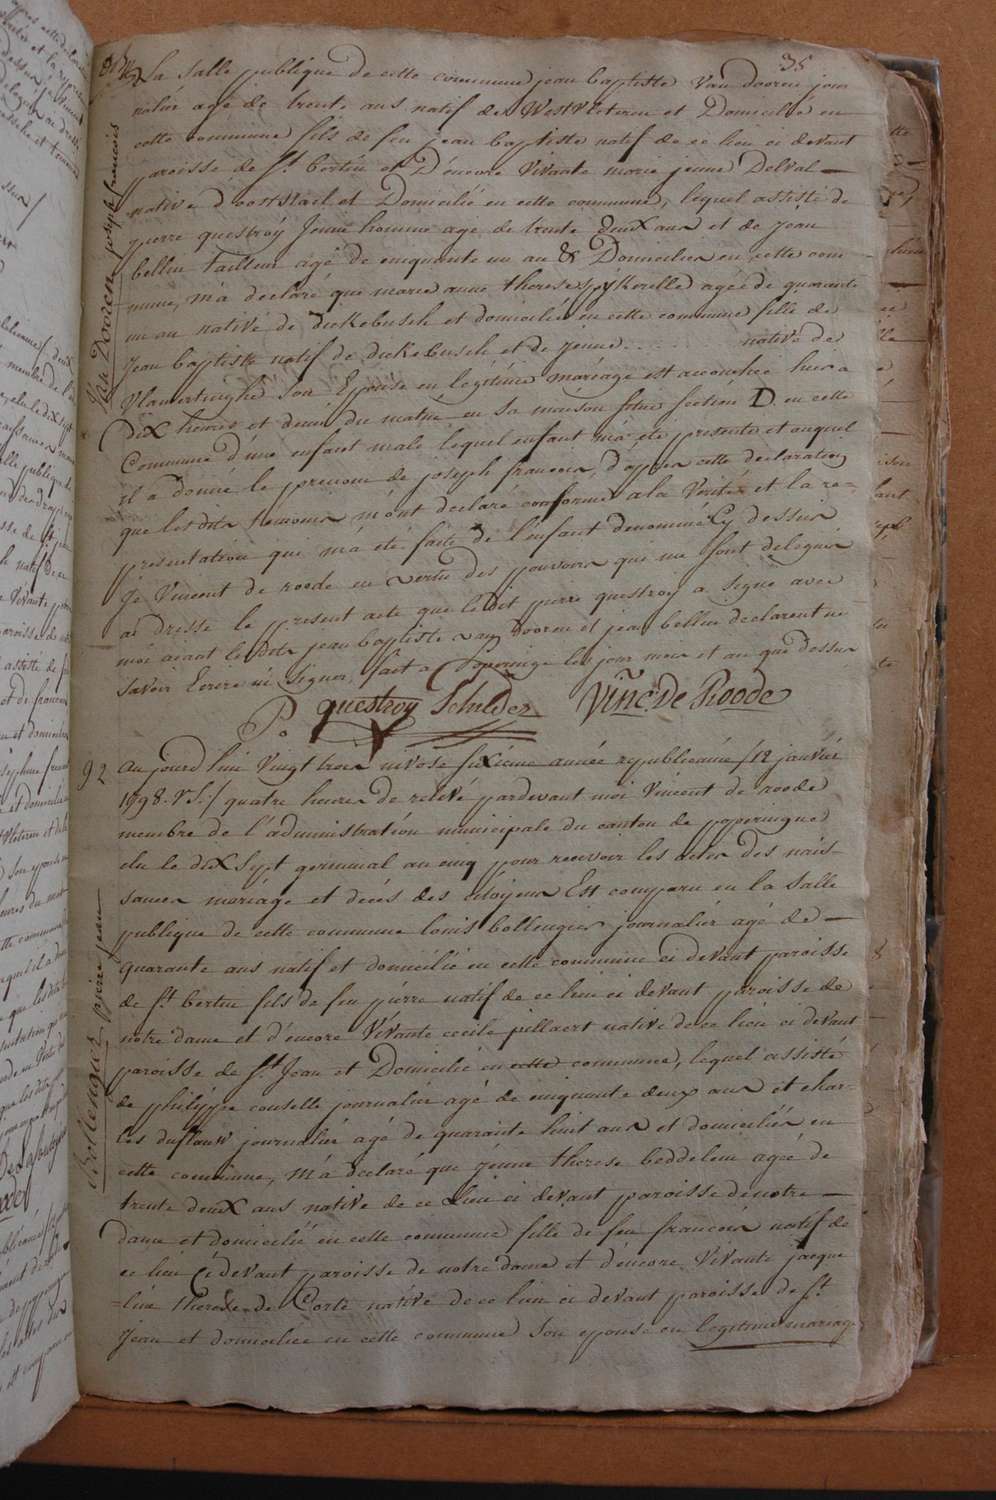 35
Van Dooren joseph francois
la Salle publique de cette commune jean baptiste Van dooren jour
nalier agé de trente ans natif de Westvleteren et Domicilié en
cette commune fils de feu jean baptiste natif de ce lieu ci devant
paroisse de st. bertin et D'encore Vivante marie jenne Delval —
native d'ooststail et Domicilié en cette commune, lequel assisté de
pierre questroÿ Jeune homme agé de trente deux ans et de jean
bellin tailleur agé de cinquante un an & Domicilier en cette com-
mune, m'a declaré que marie anne therese spÿkerelle agée de quarante
un an nativé de dickebusch et domiciliée en cette commune fille de
Jean baptiste natif de dickebusch et de jenne ..... native de
Vlamertinghe son Epouse en legitime mariage est accouchée hier a
dix heures et demi du matin en sa maison sitne section D. en cette
Commune d'une enfant male lequel enfant m'a été presenté et auquel
il a donné le prenom de joseph francois, d'apres cette declaration
que lesdits temoins m'ont declaré conforme a la Verité et la re-
presentation qui m'a été faite de l'enfant denommé Cy dessus
Je Vincent de roode en vertu des pouvoirs qui me sont deleguer
ai dressé le present acte que ledit pierre questroy a signé avec
moi aiant lesdits jean baptiste van Dooren et jean bellin declarent ne
savoir Ecrire ni signer, fait a Poperinge les jour mois et an que dessus
P. questroy Schilder Vinc. De Roode
92
Bollengier
aujourd'hui Vingt trois nivose sixième année republicaine / 12 janvier
1798. v.s. / quatre heures de relevé pardevant moi Vincent de roode
membre de l'administration municipale du canton de poperingue
elu le dix sept germinal an cinq pour recevoir les actes des nais-
sances mariage et décés des citoyens Est comparu en la Salle
publique de cette commune louis bollengier journalier agé de —
quarante ans natif et domicilié en cette commune ci devant paroisse
de st. bertin fils de feu pierre natif de ce lieu ci devant paroisse de
notre dame et d'encore Vivante cecile pillaert native de ce lieu ci devant
paroisse de st. Jean et Domicilié en cette commune, lequel assisté
de philippe couselle journalier agé de cinquante deux ans et char-
les duflouw journalier agé de quarante huit ans et domiciliés en
cette commune, m'a declaré que jenne therese beddeleem agée de
trente deux ans native de ce Lieu ci devant paroisse de notre —
dame et domiciliée en cette commune fille de feu francois natif de
ce lieu Ci devant paroisse de notre dame et d'encore Vivante jacque
=line therese de Corte native de ce lieu ci devant paroisse de st.
Jean et domiciliée en cette commune son epouse en legitime mariage